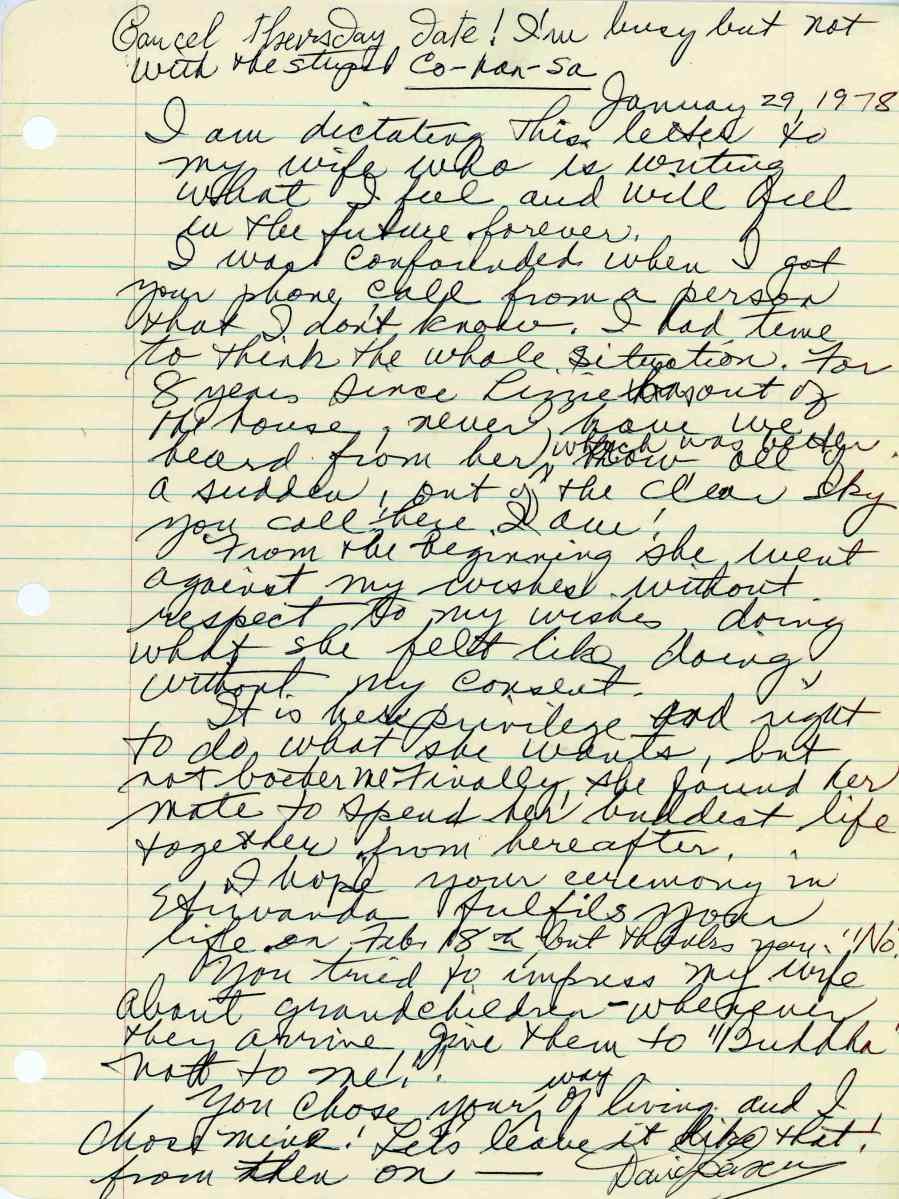 Cancel thursday date! I'm busy but not
with the stupid Co-han-sa
January 29, 1978
I am dictating this letter to
my wife who is writing
what I feel and will feel
in the future forever.
I was confounded when I got
your phone call from a person
that I don't know. I had time
to think the whole situation. For
8 years since Lizzie out of
the house, never have we
heard from her, which was better. now all of
a sudden, out of the clear sky
you call "here I am!
From the beginning she went
against my wishes without
respect to my wishes, doing
what she felt like doing
without my consent.
It is her privilege and right
to do what she wants, but
not bother me. Finally, she found her
mate to spend her buddest life
together from hereafter.
I hope your ceremony in
Etiwanda fulfils your
life on Feb. 18th, but thanks you. "No.
You tried to impress my wife
about grandchildren - whenever
they arrive, give them to "Buddha"
not to me!
You chose your way of living and I
chose mine! Lets leave it like that!
from then on — David